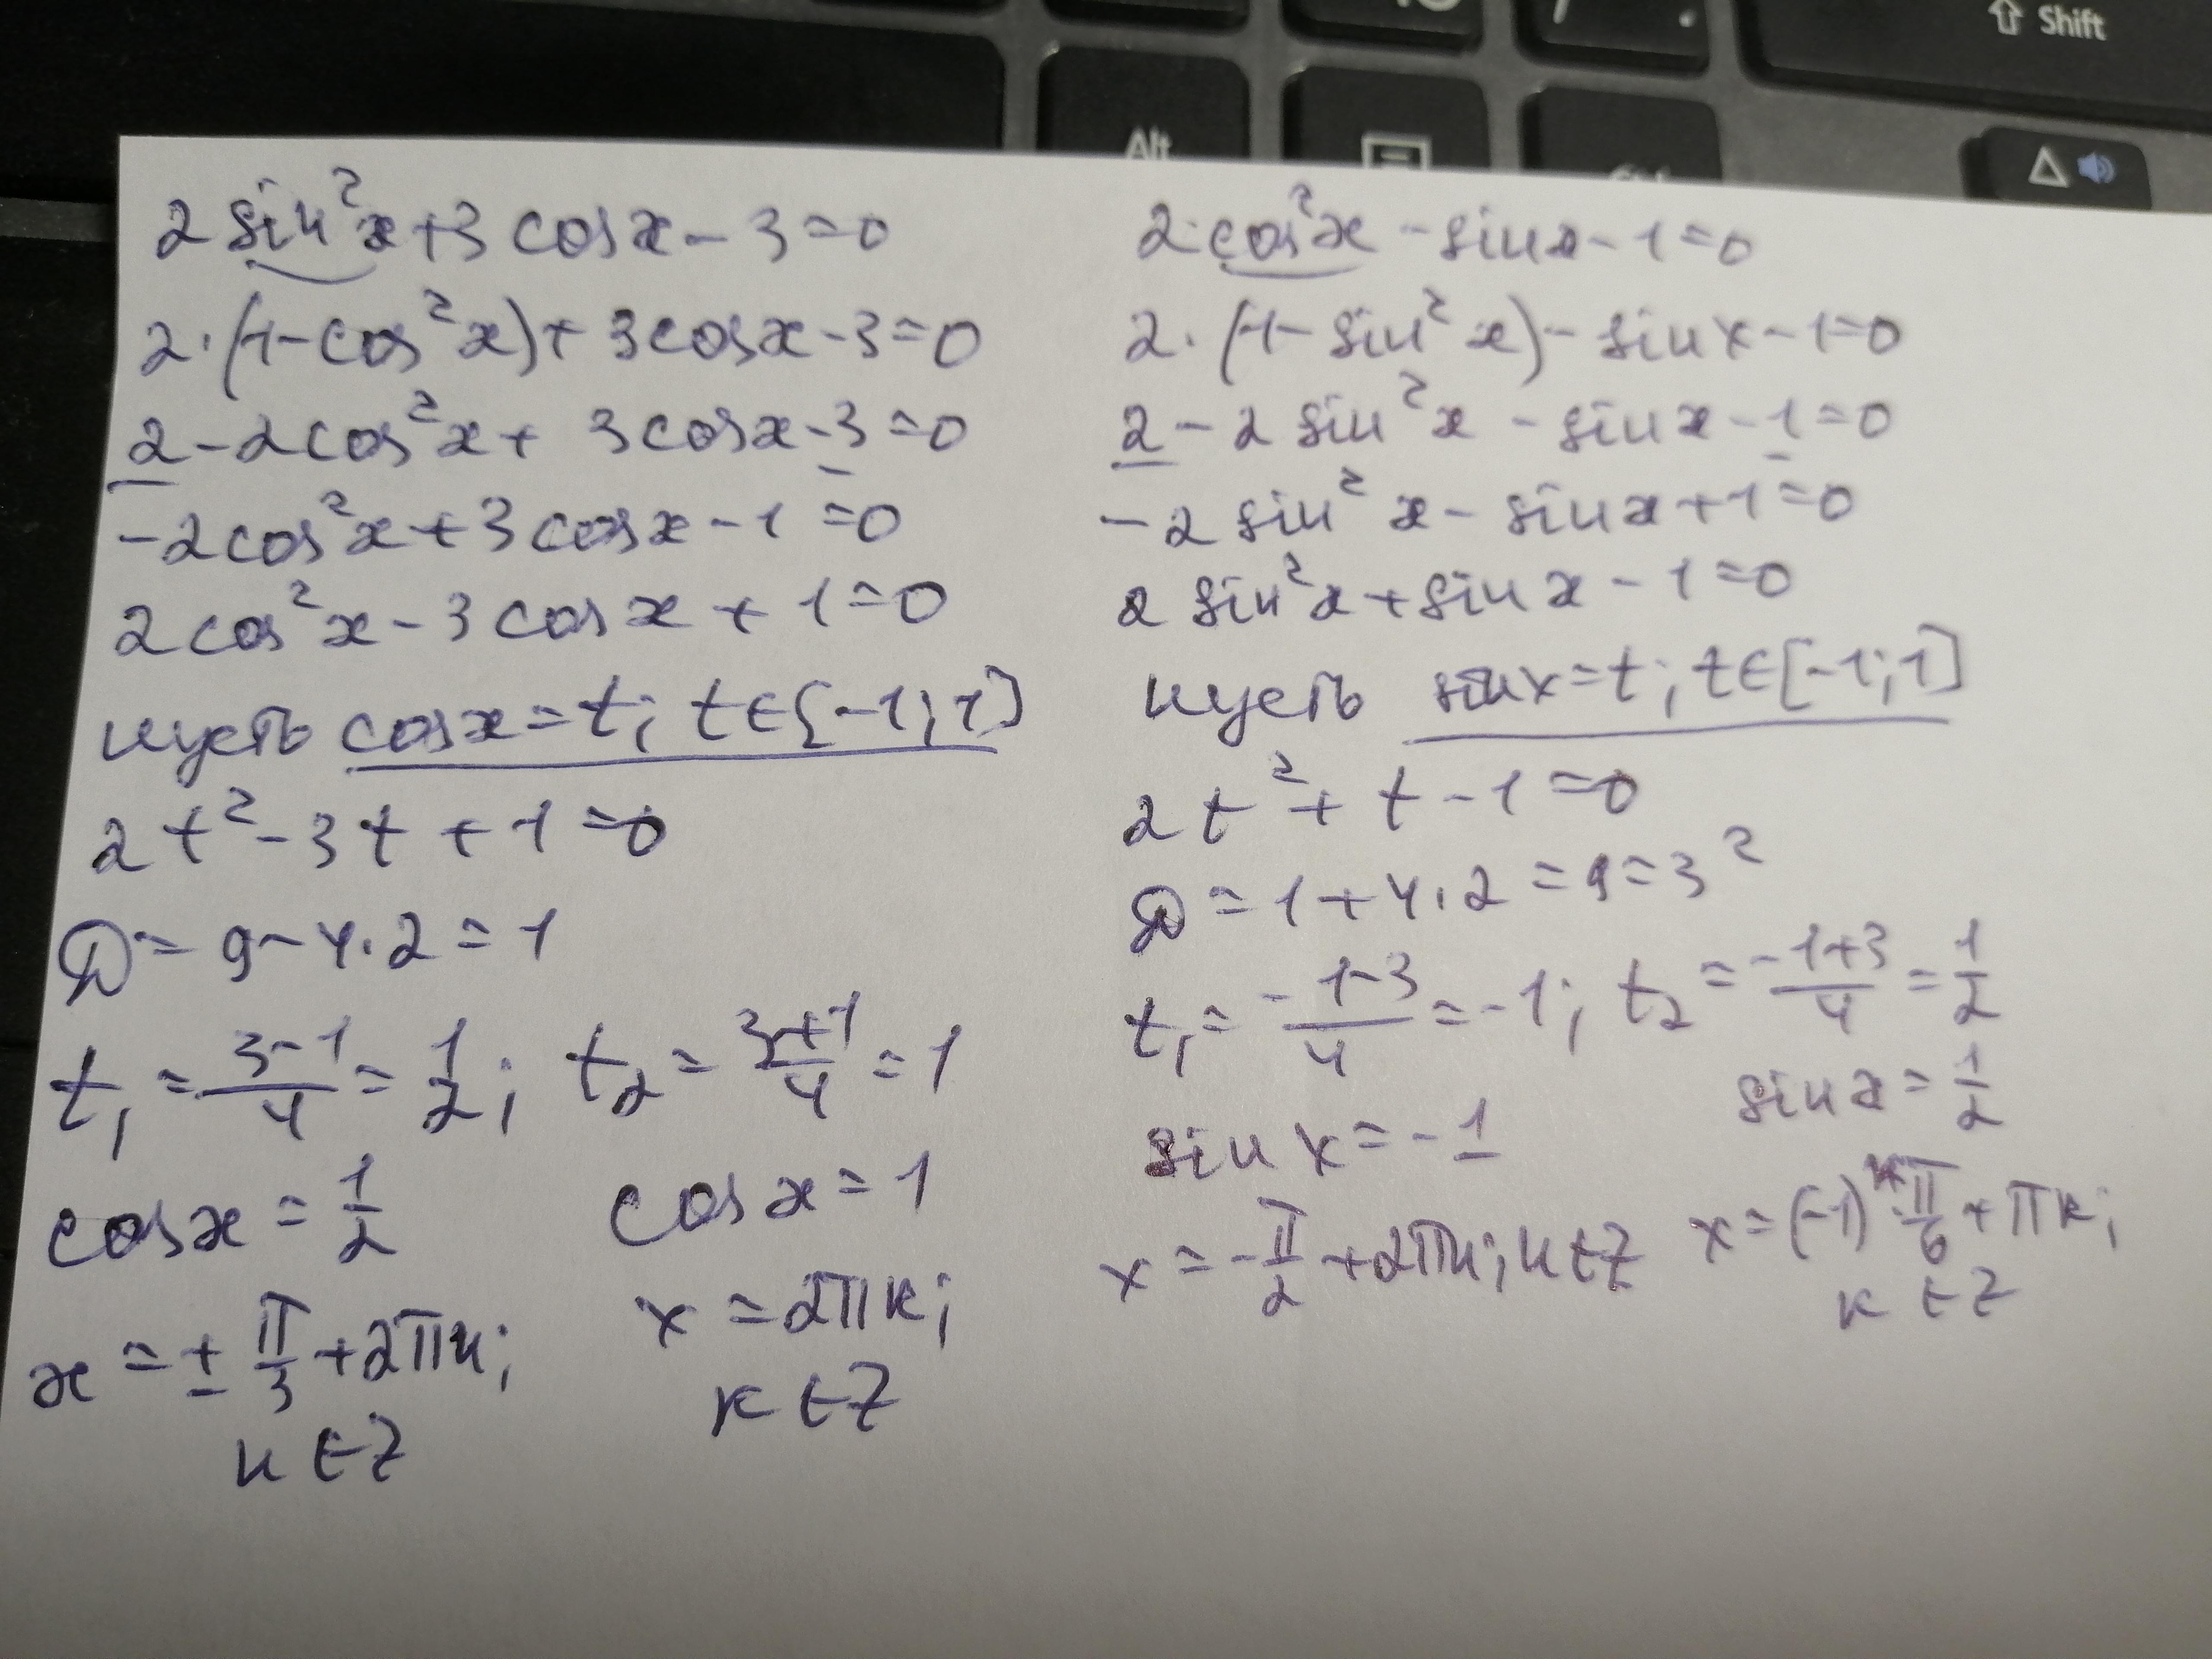 Alt
⇧ Shift
2 sin²x + 3 cosx - 3 = 0
2·(1-cos²x) + 3cosx - 3 = 0
2 - 2cos²x + 3cosx - 3 = 0
-2cos²x + 3cosx - 1 = 0
2cos²x - 3cosx + 1 = 0
пусть cosx = t; t∈[-1;1]
2t² - 3t + 1 = 0
D = 9 - 4·2 = 1
t₁ = (3-1)/4 = 1/2; t₂ = (3+1)/4 = 1
cosx = 1/2 cosx = 1
x = ± π/3 + 2πк; x = 2πк;
к∈Z к∈Z
2·cos²x - sinx - 1 = 0
2·(1-sin²x) - sinx - 1 = 0
2 - 2sin²x - sinx - 1 = 0
-2sin²x - sinx + 1 = 0
2sin²x + sinx - 1 = 0
пусть sinx = t; t∈[-1;1]
2t² + t - 1 = 0
D = 1 + 4·2 = 9 = 3²
t₁ = (-1-3)/4 = -1; t₂ = (-1+3)/4 = 1/2
sinx = -1 sinx = 1/2
x = -π/2 + 2πк; к∈Z x = (-1)ᵏ·π/6 + πк;
к∈Z